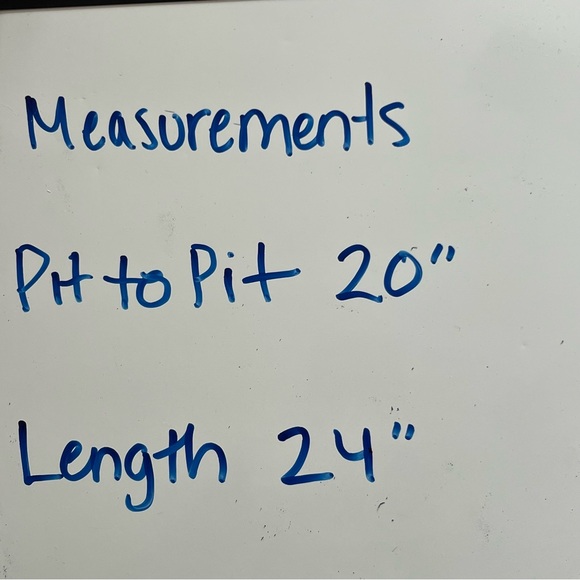 Measurements
Pit to Pit 20"
Length 24"